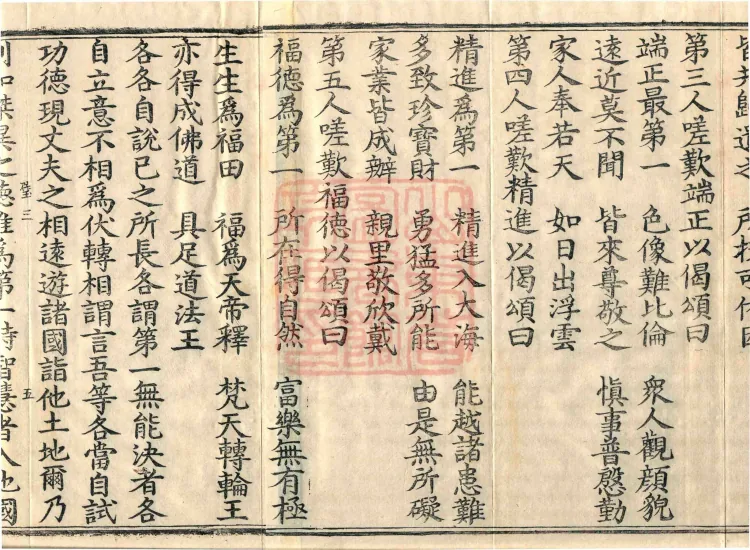 第三人嗟歎端正以偈頌曰
端正最第一　色像難比倫　衆人觀顔貌
遠近莫不聞　皆來尊敬之　慎事普慇勤
家人奉若天　如日出浮雲
第四人嗟歎精進以偈頌曰
精進爲第一　精進入大海　能越諸患難
多致珍寶財　勇猛多所能　由是無所礙
家業皆成辦　親里敬欣戴
第五人嗟歎福德以偈頌曰
福德爲第一　所在得自然　富樂無有極
生生爲福田　福爲天帝釋　梵天轉輪王
亦得成佛道　具足道法王
各各自說已之所長各謂第一無能決者各
自立意不相爲伏轉相謂言吾等各當自試
功德現丈夫之相遠遊諸國詣他土地爾乃
三　五
異之德誰爲第一時智慧者入他國